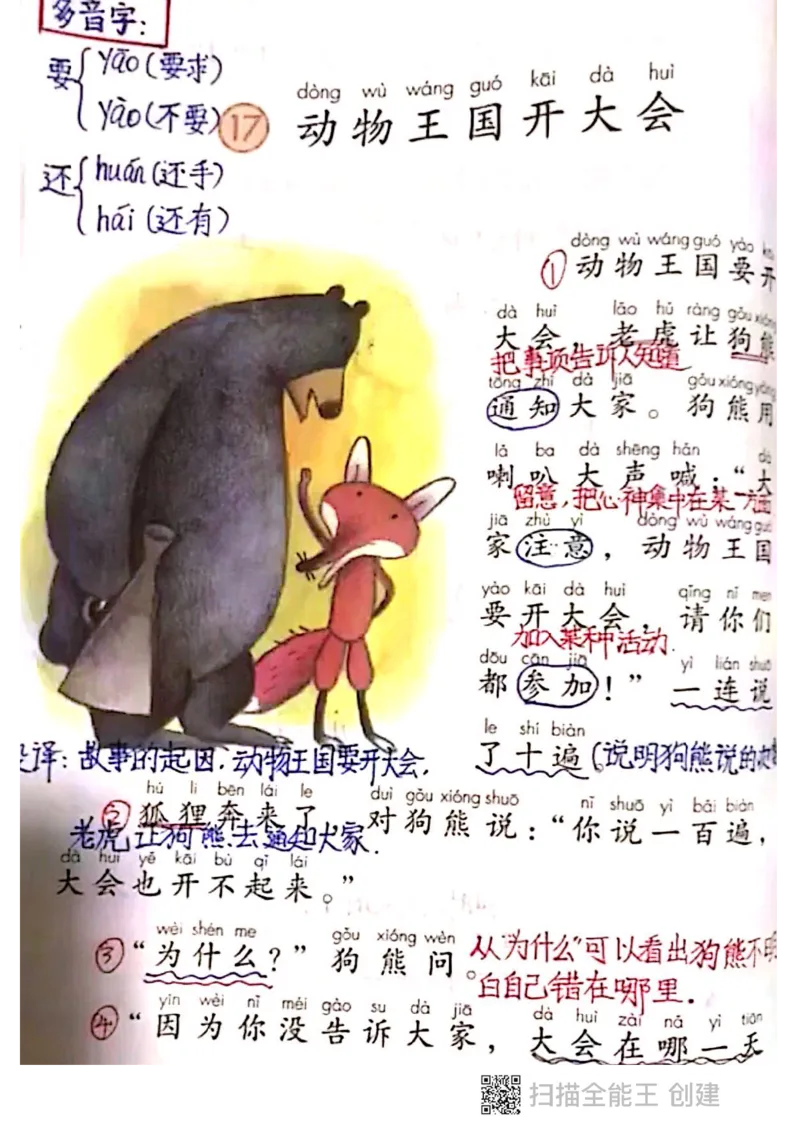 多音字:
要{yāo(要求)
yào(不要)
还{huán(还手)
hái(还有)
dòng wù wáng guó kāi dà huì
17 动物王国开大会
dòng wù wáng guó yào
①动物王国要开
dà huì lǎo hǔ ràng gǒu xióng
大会，老虎让狗熊
把事项告诉人知道
tōng zhī dà jiā gǒu xióng yòng
通知大家。狗熊用
lǎ ba dà shēng hǎn dà
喇叭大声喊：“大
留意，把心神集中在某一方面
jiā zhù yì dòng wù wáng guó
家注意，动物王国
yào kāi dà huì qǐng nǐ men
要开大会，请你们
加入某种活动.
dōu cān jiā yì lián shuō
都参加！”一连说
le shí biàn
了十遍(说明狗熊说的
译：故事的起因，动物王国要开大会，
hú li bēn lái le duì gǒu xióng shuō nǐ shuō yì bǎi biàn
②狐狸奔来了，对狗熊说：“你说一百遍，
老虎让狗熊去通知大家.
dà huì yě kāi bù qǐ lái
大会也开不起来。”
wèi shén me gǒu xióng wèn
③“为什么？”狗熊问。
从“为什么”可以看出狗熊不明
白自己错在哪里.
yīn wèi nǐ méi gào su dà jiā dà huì zài nǎ yì tiān
④“因为你没告诉大家，大会在哪一天
扫描全能王 创建